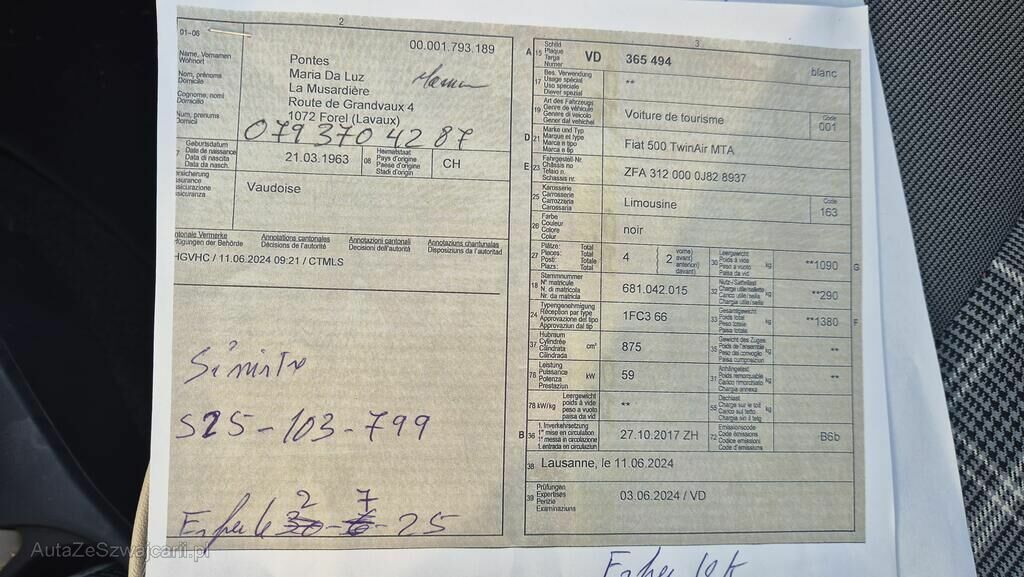 2
01-06
00.001.793.189
Name, Vornamen
Wohnort
Nom, prénoms
Domicile
Cognome, nomi
Domicilio
Num, prenums
Domicil
Pontes
Maria Da Luz
La Musardière
Route de Grandvaux 4
1072 Forel (Lavaux)
079 370 42 87
Geburtsdatum
Date de naissance
Data di nascita
Data da nasch.
21.03.1963
08 Heimatstaat
Pays d'origine
Paese d'origine
Stadi d'origin
CH
Vaudoise
Annotations cantonales
Décisions de l'autorité
Annotazioni cantonali
Decisioni dell'autorità
Annotaziuns chantunalas
Disposiziuns da l'autoritad
HGVHC / 11.06.2024 09:21 / CTMLS
S25-103-799
3
A 15 Schild
Plaque
Targa
Numer
VD 365 494 blanc
17 Bes. Verwendung
Usage spécial
Uso speciale
Diever spezial
**
19 Art des Fahrzeugs
Genre de véhicule
Genere di veicolo
Gener dal vehichel
Voiture de tourisme
Code
001
D 21 Marke und Typ
Marque et type
Marca e tipo
Marca e tip
Fiat 500 TwinAir MTA
E 23 Fahrgestell-Nr.
Châssis no
Telaio n.
Schassis nr.
ZFA 312 000 0J82 8937
25 Karosserie
Carrosserie
Carrozzeria
Carossaria
Limousine
Code
163
26 Farbe
Couleur
Colore
Colur
noir
27 Plätze: Total
Places: Total
Posti: Totale
Plazs: Total
4 2 vorne)
avant)
anteriori)
davant)
30 Leergewicht
Poids à vide
Peso a vuoto
Paisa da vid
kg **1090 G
18 Stammnummer
N° matricule
N. di matricola
Nr. da matricla
681.042.015
32 Nutz-/Sattellast
Charge utile/sellette
Carico utile/sella
Chargia utila/sella
kg **290
24 Typengenehmigung
Réception par type
Approvazione del tipo
Approvaziun dal tip
1FC3 66
33 Gesamtgewicht
Poids total
Peso totale
Paisa totala
kg **1380 F
37 Hubraum
Cylindrée
Cilindrata
Cilindrada
cm³ 875
35 Gewicht des Zuges
Poids de l'ensemble
Peso del convoglio
Paisa cumposiziun
kg **
76 Leistung
Puissance
Potenza
Prestaziun
kW 59
31 Anhängelast
Poids remorquable
Carico rimorchiato
Chargia annexa
kg **
78 kW/kg Leergewicht
poids à vide
peso a vuoto
paisa da vid
**
55 Dachlast
Charge sur le toit
Carico sul tetto
Chargia sin il tetg
kg
B 36 1. Inverkehrsetzung
1re mise en circulation
1a messa in circolazione
1. entrada en circulaziun
27.10.2017 ZH
72 Emissionscode
Code émissions
Codice emissioni
Code d'emissiuns
B6b
38 Lausanne, le 11.06.2024
39 Prüfungen
Expertises
Perizie
Examinaziuns
03.06.2024 / VD
AutaZeSzwajcarii.pl